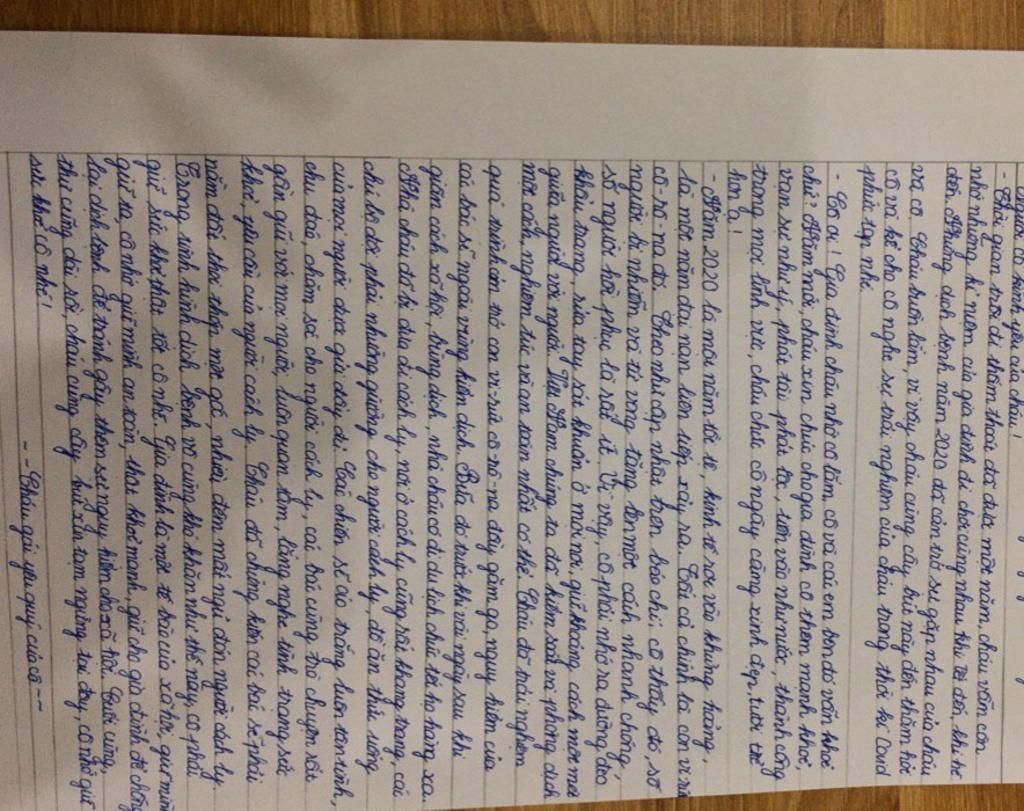 Người cô kính yêu của cháu!
- Thời gian trôi đi thấm thoắt đã được một năm, cháu vẫn còn
nhớ những kỉ niệm của gia đình đi chơi cùng nhau khi tết đến khi hè
đến. Nhưng dịch bệnh năm 2020 đã cản trở sự gặp nhau của cháu
và cô. Cháu buồn lắm, vì vậy cháu cùng cây bút này đến thăm hỏi
cô và kể cho cô nghe sự trải nghiệm của cháu trong thời kì Covid
phức tạp nhé.
- Cô ơi! Gia đình cháu nhớ cô lắm, cô và các em bên đó vẫn khoẻ
chứ? Năm mới, cháu xin chúc cho gia đình cô thêm mạnh khoẻ,
vạn sự như ý, phát tài phát lộc, tiền vào như nước, thành công
trong mọi lĩnh vực, cháu chúc cô ngày càng xinh đẹp, tươi trẻ
hơn ạ!
- Năm 2020 là một năm tồi tệ, kinh tế rơi vào khủng hoảng,
là một năm đại nạn liên tiếp xảy ra. Tất cả chính là con vi rút
cô-rô-na đó. Theo như cập nhật trên báo chí: cô thấy đó, số
người bị nhiễm và tử vong tăng lên một cách nhanh chóng,
số người hồi phục lá rất ít. Vì vậy, cô phải nhớ ra đường đeo
khẩu trang, rửa tay sát khuẩn ở mọi nơi, giữ khoảng cách một mét
giữa người với người. Việt Nam chúng ta đã kiểm soát và phòng dịch
một cách nghiêm túc và an toàn nhất có thể. Cháu đã trải nghiệm
quá trình cản trở con vi-rút cô-rô-na đầy gắm go, nguy hiểm của
các bác sĩ ngoài vùng kiểm dịch. Bữa đó trước khi vài ngày sau khi
giãn cách xã hội, bùng dịch, nhà cháu có đi du lịch hữu tẻ họ hàng xa.
Nhà cháu đã bị đưa đi cách ly, nơi ở cách ly cũng rất khang trang, các
chú bộ đội phải nhường giường cho người cách ly, đồ ăn thức uống
của mọi người được gửi đầy đủ. Các chiến sĩ áo trắng luôn tận tình,
chu đáo, chăm sóc cho người cách ly, các bác cũng trò chuyện rất
gần gũi với mọi người, luôn quan tâm, lắng nghe tình trạng sức
khoẻ, yêu cầu của người cách ly. Cháu đã chứng kiến các bác sĩ phải
nằm đất thoi thóp một góc, nhiều đêm mất ngủ đón người cách ly.
Trong tình hình dịch bệnh vô cùng khó khăn như thế này, cô phải
giữ sức khoẻ thật tốt cô nhé. Gia đình là một tế bào của xã hội, giữ mình
giữ ta, cô nhớ giữ mình an toàn, thật khoẻ mạnh, giữ cho gia đình để chống
lại dịch bệnh để tránh gây thêm sự nguy hiểm cho xã hội. Cuối cùng,
thư cũng dài rồi, cháu cùng cây bút xin tạm ngừng tại đây, cô nhớ giữ
sức khoẻ cô nhé!
--Cháu gái yêu quý của cô--